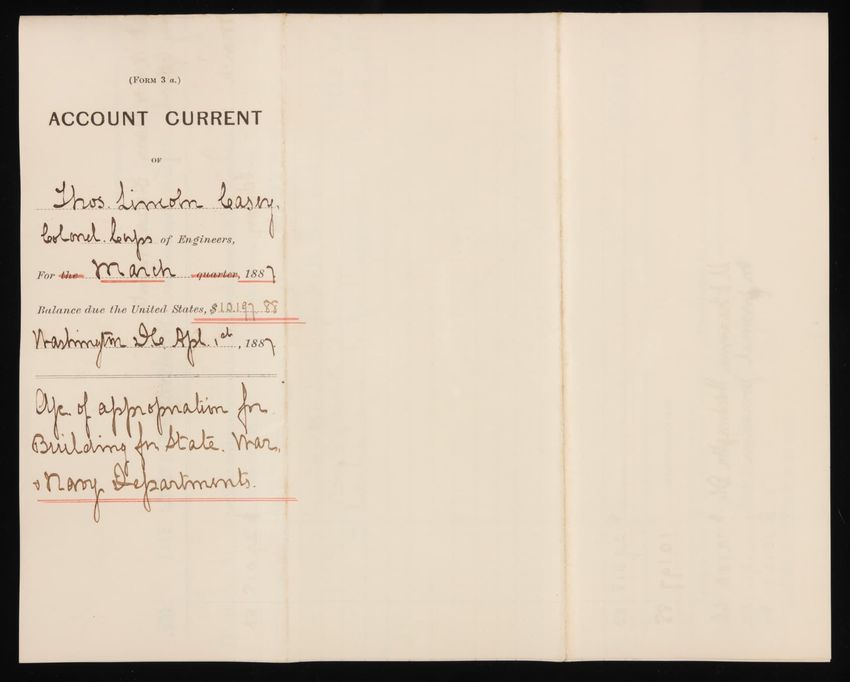 (FORM 3 a.)
ACCOUNT CURRENT
OF
Thos. Lincoln Casey,
Colonel. Corps of Engineers,
For the March quarter, 1887
Balance due the United States, $10,197.88
Washington DC, Apl. 1st, 1887
of appropriation for
Building for State, War,
& Navy Departments.